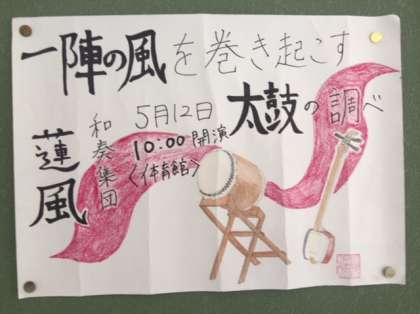 一陣の風を巻き起こす
太鼓の調べ
5月12日
10:00 開演
〈体育館〉
和奏集団
蓮風